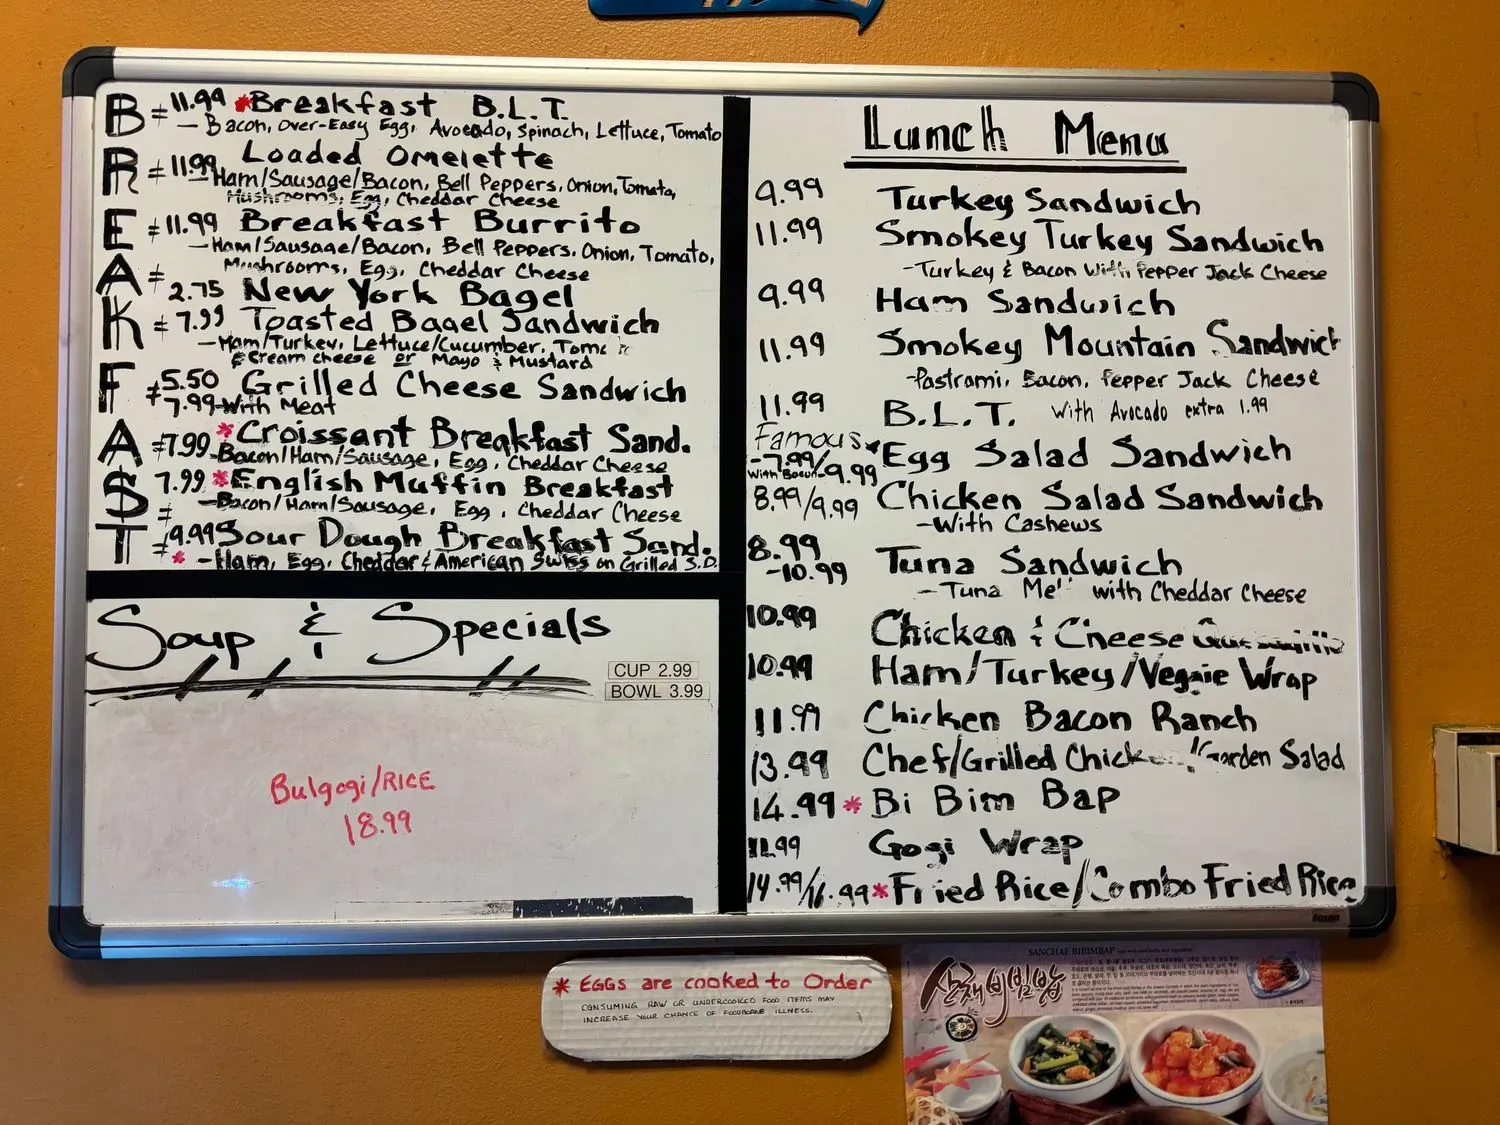 B = 11.99 *Breakfast B.L.T.
- Bacon, Over-Easy Egg, Avocado, Spinach, Lettuce, Tomato
R = 11.99 Loaded Omelette
- Ham/Sausage/Bacon, Bell Peppers, Onion, Tomato,
Mushrooms, Egg, Cheddar Cheese
E = 11.99 Breakfast Burrito
- Ham/Sausage/Bacon, Bell Peppers, Onion, Tomato,
Mushrooms, Egg, Cheddar Cheese
A = 2.75 New York Bagel
K = 7.99 Toasted Bagel Sandwich
- Ham/Turkey, Lettuce/Cucumber,
& Cream cheese or Mayo & Mustard
F = 5.50 Grilled Cheese Sandwich
7.99 - With Meat
A = 7.99 *Croissant Breakfast Sand.
- Bacon/Ham/Sausage, Egg, Cheddar Cheese
S = 7.99 *English Muffin Breakfast
- Bacon/Ham/Sausage, Egg, Cheddar Cheese
T = 9.99 Sour Dough Breakfast Sand.
* - Ham, Egg, Cheddar & American Swiss on Grilled S.D.
Soup & Specials
CUP 2.99
BOWL 3.99
Bulgogi/RICE
18.99
Lunch Menu
9.99 Turkey Sandwich
11.99 Smokey Turkey Sandwich
- Turkey & Bacon With Pepper Jack Cheese
9.99 Ham Sandwich
11.99 Smokey Mountain Sandwich
- Pastrami, Bacon, Pepper Jack Cheese
11.99 B.L.T. With Avocado extra 1.99
Famous
- 7.99/ Egg Salad Sandwich
With Bacon - 9.99
8.99/9.99 Chicken Salad Sandwich
- With Cashews
8.99 Tuna Sandwich
- 10.99 - Tuna with Cheddar Cheese
10.99 Chicken & Cheese
10.99 Ham/Turkey/Veggie Wrap
11.99 Chicken Bacon Ranch
13.99 Chef/Grilled Chicken/Garden Salad
14.99 *Bi Bim Bap
11.99 Gogi Wrap
14.99/16.99 *Fried Rice/Combo Fried Rice
* EGGS are cooked to Order
CONSUMING RAW OR UNDERCOOKED FOOD ITEMS MAY
INCREASE YOUR CHANCE OF FOODBORNE ILLNESS.
SANCHAE BIBIMBAP
산채비빔밥